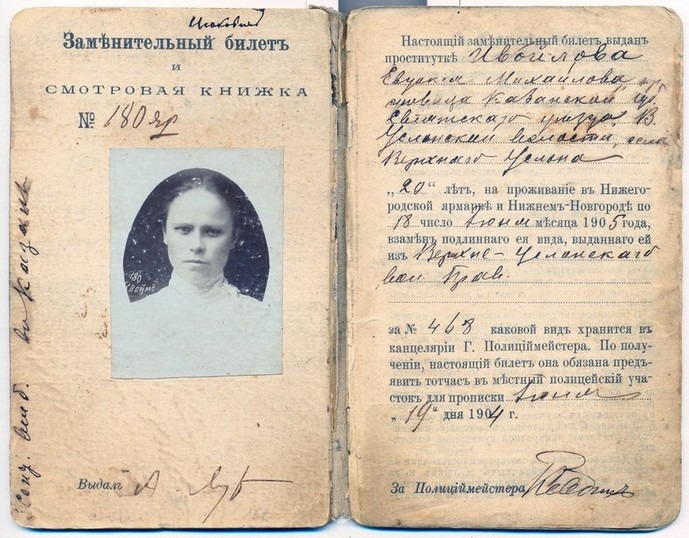 Замѣнительный билетъ
и
СМОТРОВАЯ КНИЖКА
№ 180 яр
180
Выдалъ
Настоящій замѣнительный билетъ выданъ
проституткѣ Ивойлова
Евдокія Михайлова, кр.
Казанской губ.
уѣзда, В.
Услонской волости, села
Верхняго Услона
„20“ лѣтъ, на проживаніе въ Нижего-
родской ярмаркѣ и Нижнемъ-Новгородѣ по
18 число іюня мѣсяца 1905 года,
взамѣнъ подлиннаго ея вида, выданнаго ей
изъ Верхне-Услонскаго
вол. Прав.
за № 468 каковой видъ хранится въ
канцеляріи Г. Полиціймейстера. По полу-
ченіи, настоящій билетъ она обязана предъ-
явить тотчасъ въ мѣстный полицейскій уча-
стокъ для прописки іюня
„19“ дня 1904 г.
За Полиціймейстера